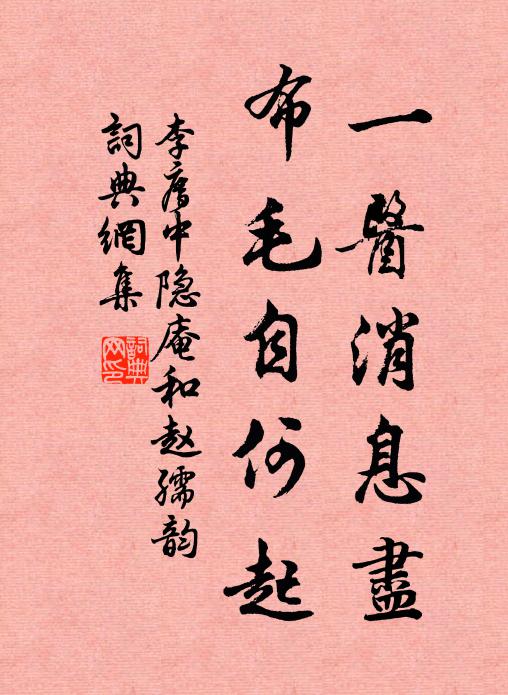 一瞖消息盡
布毛自何起
李廌中隐庵和赵孺韵
詞典網集
詞典网印